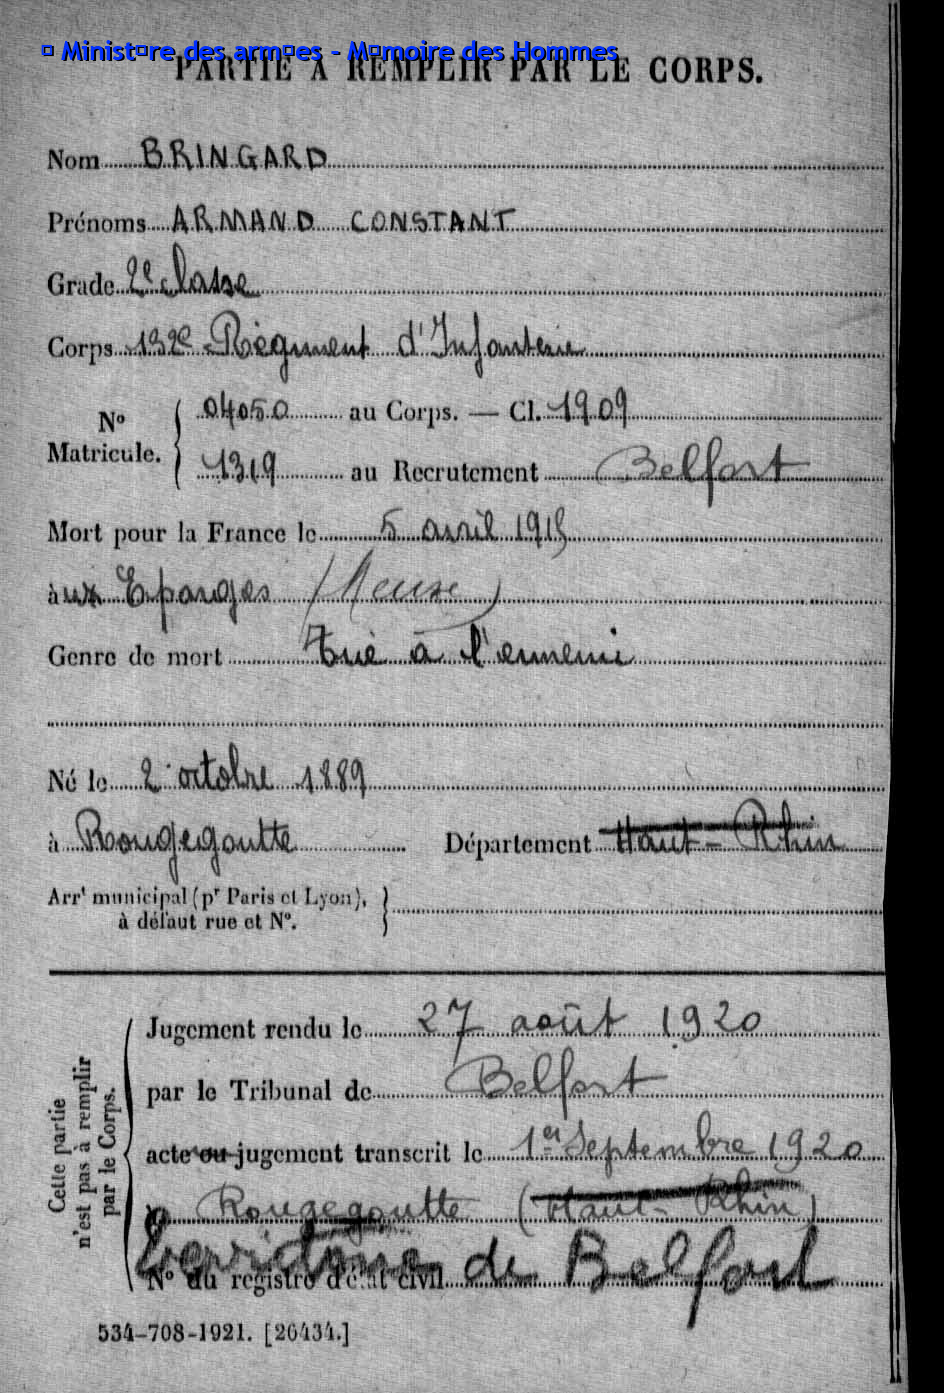 © Ministère des armées - Mémoire des Hommes
PARTIE À REMPLIR PAR LE CORPS.
Nom BRINGARD
Prénoms ARMAND CONSTANT
Grade 2e classe
Corps 132e Régiment d'Infanterie
No Matricule. { 04050 au Corps. — Cl. 1909
1319 au Recrutement Belfort
Mort pour la France le 5 avril 1915
aux Eparges (Meuse)
Genre de mort Tué à l'ennemi
Né le 2 octobre 1889
à Rougegoutte Département Haut-Rhin
Arrt municipal (pr Paris et Lyon),
à défaut rue et No.
Cette partie
n'est pas à remplir
par le Corps.
Jugement rendu le 27 août 1920
par le Tribunal de Belfort
acte ou jugement transcrit le 1er Septembre 1920
à Rougegoutte (Haut-Rhin)
Territoire de Belfort
No du registre d'état civil
534-708-1921. [26434.]